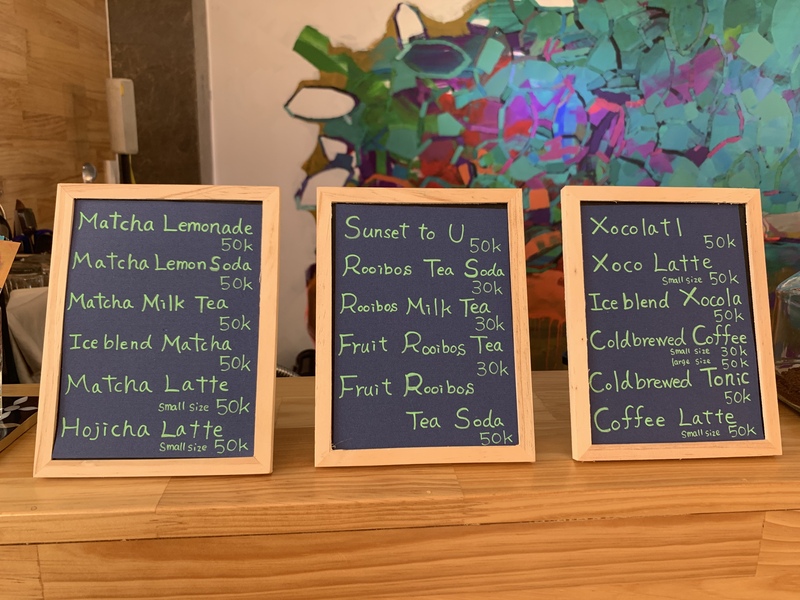 Matcha Lemonade
50k
Matcha Lemon Soda
50k
Matcha Milk Tea
50k
Ice blend Matcha
50k
Matcha Latte
Small size 50k
Hojicha Latte
Small size 50k
Sunset to U
50k
Rooibos Tea Soda
30k
Rooibos Milk Tea
30k
Fruit Rooibos Tea
30k
Fruit Rooibos
Tea Soda
50k
Xocolatl
50k
Xoco Latte
Small size 50k
Ice blend Xocola
50k
Coldbrewed Coffee
Small size 30k
large size 50k
Coldbrewed Tonic
50k
Coffee Latte
Small size 50k